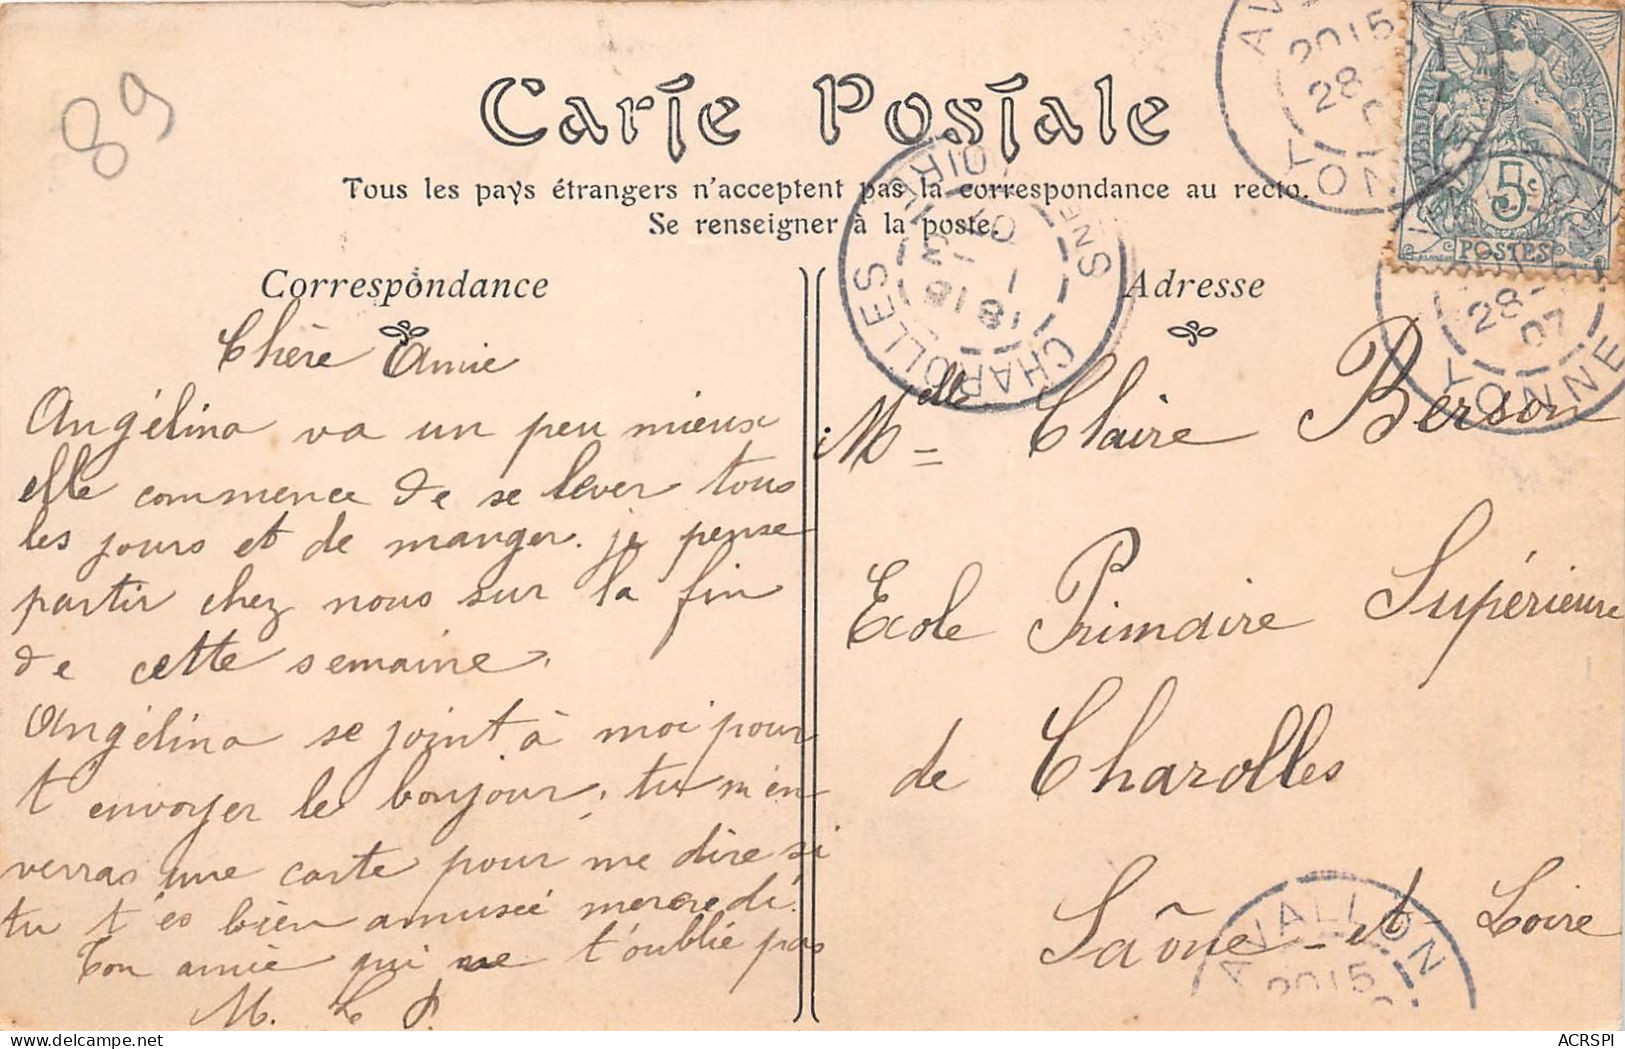 89
Carte Postale
Tous les pays étrangers n'acceptent pas la correspondance au recto.
Se renseigner à la poste.
Correspondance
Chère Amie
Angélina va un peu mieux
elle commence de se lever tous
les jours et de manger. je pense
partir chez nous sur la fin
de cette semaine.
Angélina se joint à moi pour
t'envoyer le bonjour, tu m'en
verras une carte pour me dire si
tu t'es bien amusée mercredi.
Ton amie qui ne t'oublie pas
M.
Adresse
Melle Claire Berson
Ecole Primaire Supérieure
de Charolles
Saône-et-Loire
RÉPUBLIQUE FRANÇAISE
5c
POSTES
2015
28
YONNE
28
07
YONNE
CHAROLLES
AVALLON
2015
ACRSPI